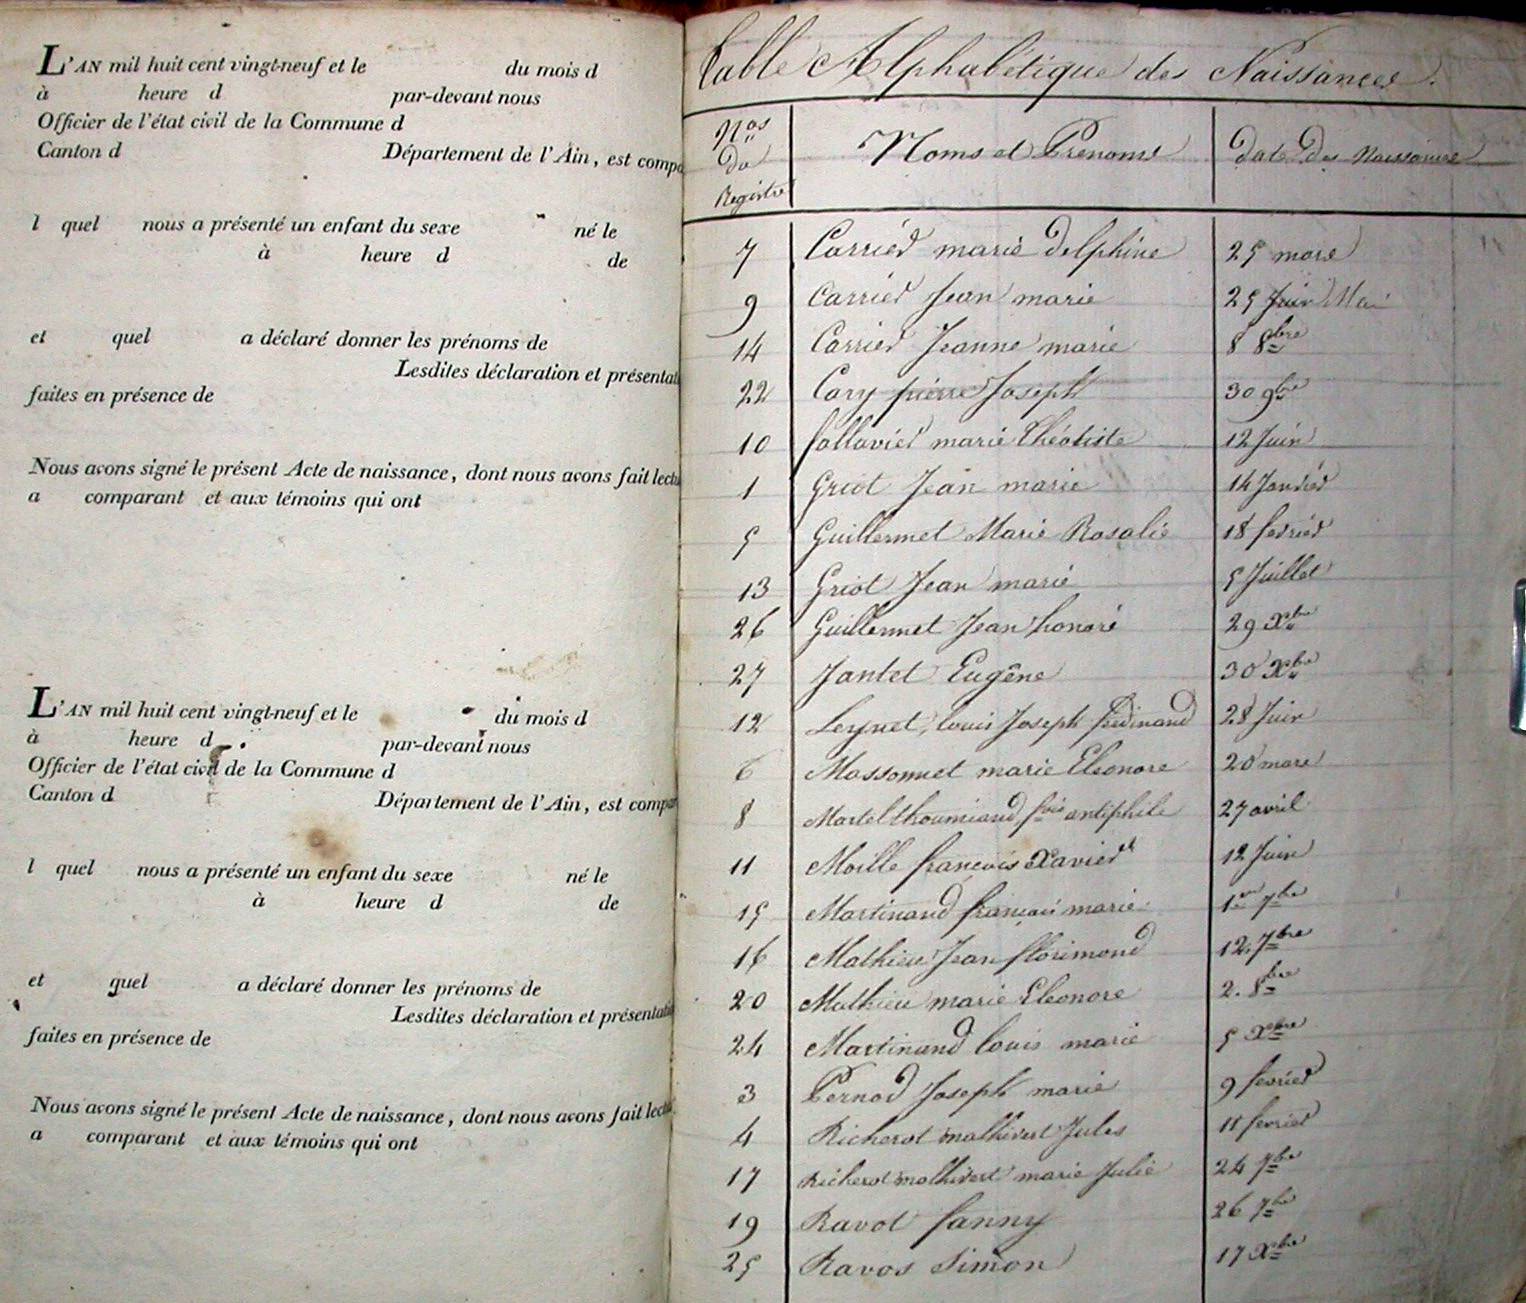 L'AN mil huit cent vingt-neuf et le du mois d
à heure d par-devant nous
Officier de l'état civil de la Commune d
Canton d Département de l'Ain, est compa
l quel nous a présenté un enfant du sexe né le
à heure d de
et quel a déclaré donner les prénoms de
Lesdites déclaration et présentat
faites en présence de
Nous avons signé le présent Acte de naissance, dont nous avons fait lectu
a comparant et aux témoins qui ont
L'AN mil huit cent vingt-neuf et le du mois d
à heure d par-devant nous
Officier de l'état civil de la Commune d
Canton d Département de l'Ain, est compar
l quel nous a présenté un enfant du sexe né le
à heure d de
et quel a déclaré donner les prénoms de
Lesdites déclaration et présentatio
faites en présence de
Nous avons signé le présent Acte de naissance, dont nous avons fait lectu
a comparant et aux témoins qui ont
Table Alphabétique des Naissances.
Nos du Registre Noms et Prénoms date des Naissances
7 Carrier marie delphine 25 mars
9 Carrier Jean marie 25 Juin Mai
14 Carrier Jeanne marie 8 8bre
22 Cary pierre Joseph 30 9bre
10 follavier marie théotiste 12 Juin
1 Griot Jean marie 14 Janvier
5 Guillermet Marie Rosalie 18 fevrier
13 Griot Jean marie 5 Juillet
26 Guillermet Jean honoré 29 Xbre
27 Jantet Eugêne 30 Xbre
12 Leynet, louis Joseph ferdinand 28 Juin
6 Massonnet marie Eleonore 20 mars
8 Martel thoumiand fois antiphile 27 avril
11 Moille françois Xavier 12 Juin
15 Martinand francois marie 1er 7bre
16 Mathieu Jean florimond 12. 7bre
20 Mathieu marie Eleonore 2. 8bre
24 Martinand louis marie 5 Xbre
3 Pernod Joseph marie 9 fevrier
4 Richerot malhivert Jules 11 fevrier
17 Richerot malhivert marie Julie 24 7bre
19 Ravot fanny 26 7bre
25 Ravos Simon 17 Xbre